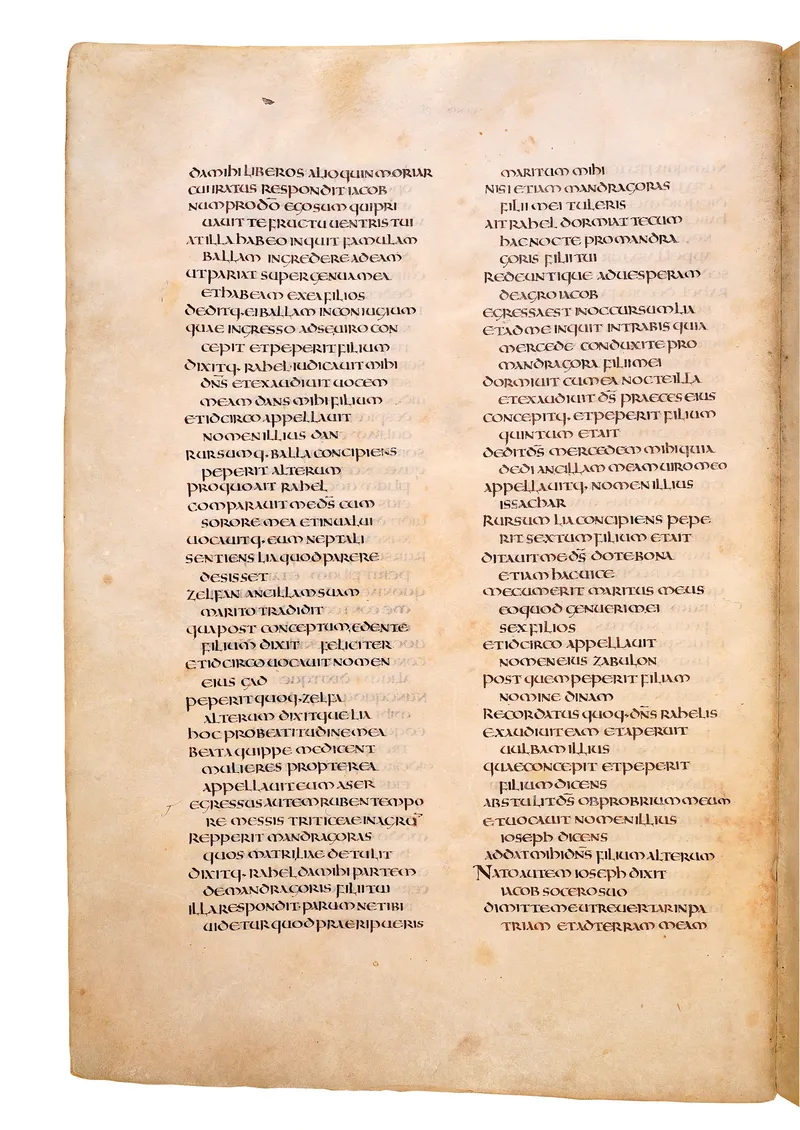 damihi liberos alioquin moriar
cui iratus respondit iacob
num pro dō ego sum qui pri
uauit te fructu uentris tui
at illa habeo inquit famulam
ballam ingredere ad eam
ut pariat super genua mea
et habeam ex ea filios
deditq· ei ballam in coniugium
quae ingresso ad se uiro con
cepit et peperit filium
dixitq· rahel iudicauit mihi
dn̄s et exaudiuit uocem
meam dans mihi filium
et idcirco appellauit
nomen illius dan
rursumq· balla concipiens
peperit alterum
pro quo ait rahel
comparauit me ds̄ cum
sorore mea et inualui
uocauitq· eum neptali
sentiens lia quod parere
desisset
zelfan ancillam suam
marito tradidit
qua post conceptum edente
filium dixit feliciter
et idcirco uocauit nomen
eius gad
peperit quoq· zelfa
alterum dixitque lia
hoc pro beatitudine mea
beata quippe me dicent
mulieres propterea
appellauit eum aser
egressus autem ruben tempo
re messis triticeae in agrū
repperit mandragoras
quos matri liae detulit
dixitq· rahel da mihi partem
de mandragoris filii tui
illa respondit· parum ne tibi
uidetur quod praeripueris
maritum mihi
nisi etiam mandragoras
filii mei tuleris
ait rahel dormiat tecum
hac nocte pro mandra
goris filii tui
redeuntique ad uesperam
de agro iacob
egressa est in occursum lia
et ad me inquit intrabis quia
mercede conduxi te pro
mandragora filii mei
dormiuit cum ea nocte illa
et exaudiuit ds̄ praeces eius
concepitq· et peperit filium
quintum et ait
dedit ds̄ mercedem mihi quia
dedi ancillam meam uiro meo
appellauitq· nomen illius
issachar
rursum lia concipiens pepe
rit sextum filium et ait
ditauit me ds̄ dote bona
etiam hac uice
mecum erit maritus meus
eo quod genuerim ei
sex filios
et idcirco appellauit
nomen eius zabulon
post quem peperit filiam
nomine dinam
recordatus quoq· dn̄s rahelis
exaudiuit eam et aperuit
uulbam illius
quae concepit et peperit
filium dicens
abstulit ds̄ obprobrium meum
et uocauit nomen illius
ioseph dicens
addat mihi dn̄s filium alterum
Nato autem ioseph dixit
iacob socero suo
dimitte me ut reuertar in pa
triam et ad terram meam